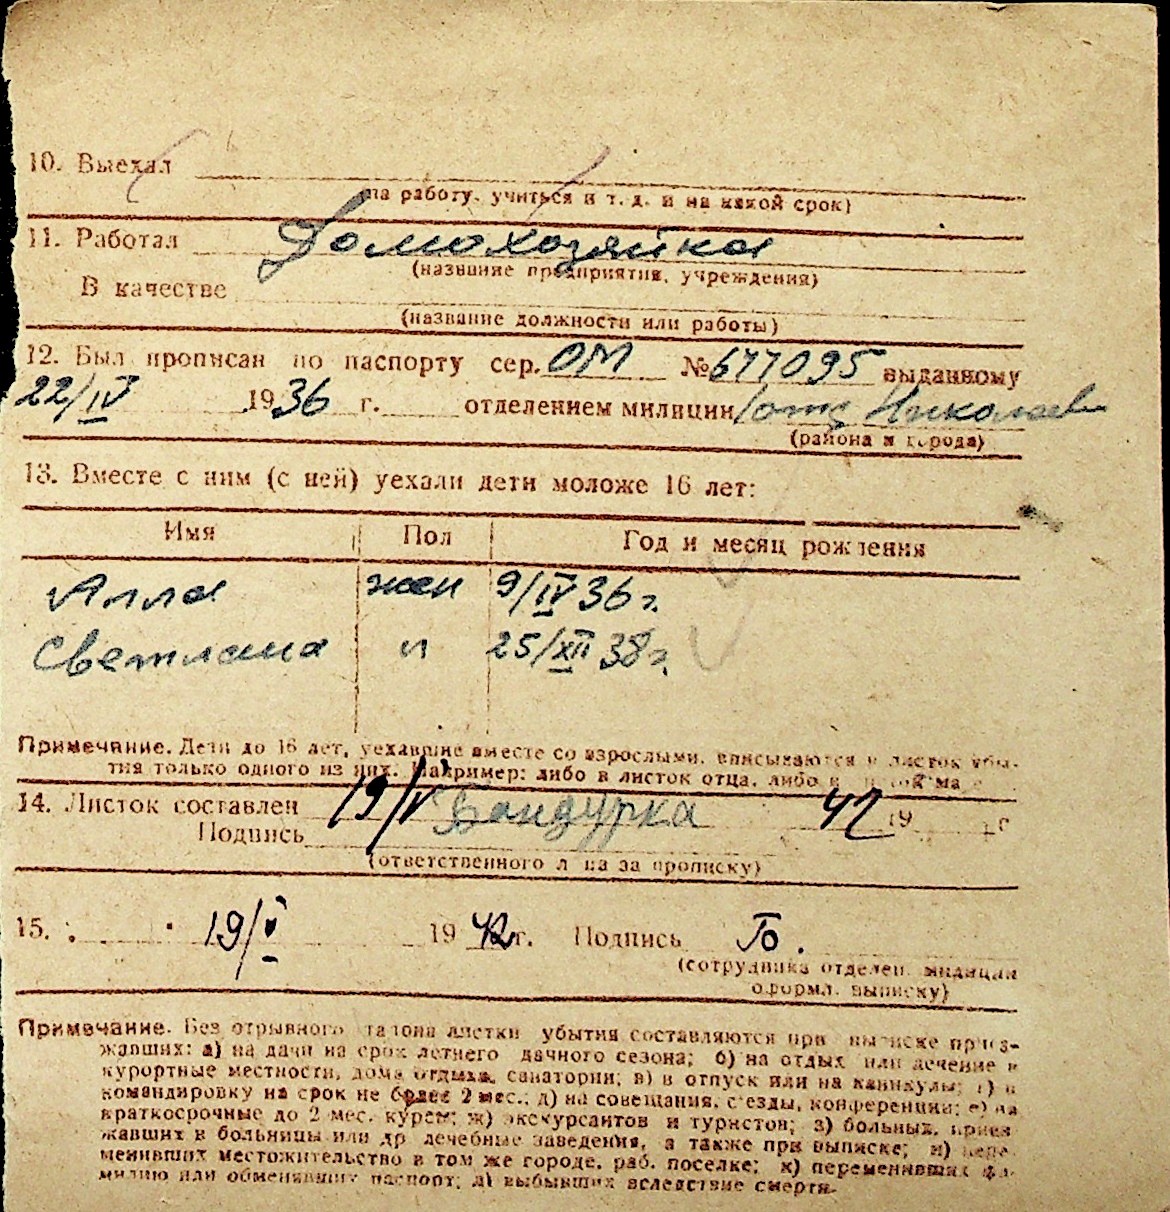 10. Выехал
(на работу, учиться и т. д. и на какой срок)
11. Работал Домохозяйка
(название предприятия, учреждения)
В качестве
(название должности или работы)
12. Был прописан по паспорту сер. ОМ № 677095 выданному
22/IV 1936 г. отделением милиции Николаев
(района и города)
13. Вместе с ним (с ней) уехали дети моложе 16 лет:
Имя Пол Год и месяц рождения
Алла жен 9/IV 36 г.
Светлана 25/XII 38 г.
Примечание. Дети до 16 лет, уехавшие вместе со взрослыми, вписываются в листок убы-
тия только одного из них. Например: либо в листок отца, либо в
14. Листок составлен 19/V 42 19 г
Подпись Бандурка
(ответственного лица за прописку)
15. 19/V 1942 г. Подпись Б.
(сотрудника отделен. милиции
оформл. выписку)
Примечание. Без отрывного талона листки убытия составляются при выписке приез-
жавших: а) на дачи на срок летнего дачного сезона; б) на отдых или лечение в
курортные местности, дома отдыха, санатории; в) в отпуск или на каникулы; г) в
командировку на срок не более 2 мес.; д) на совещания, съезды, конференции; е) на
краткосрочные до 2 мес. курсы; ж) экскурсантов и туристов; з) больных, приез
жавших в больницы или др лечебные заведения, а также при выписке; и) пере
менивших местожительство в том же городе, раб. поселке; к) переменивших фа-
милию или обменявших паспорт; л) выбывших вследствие смерти.